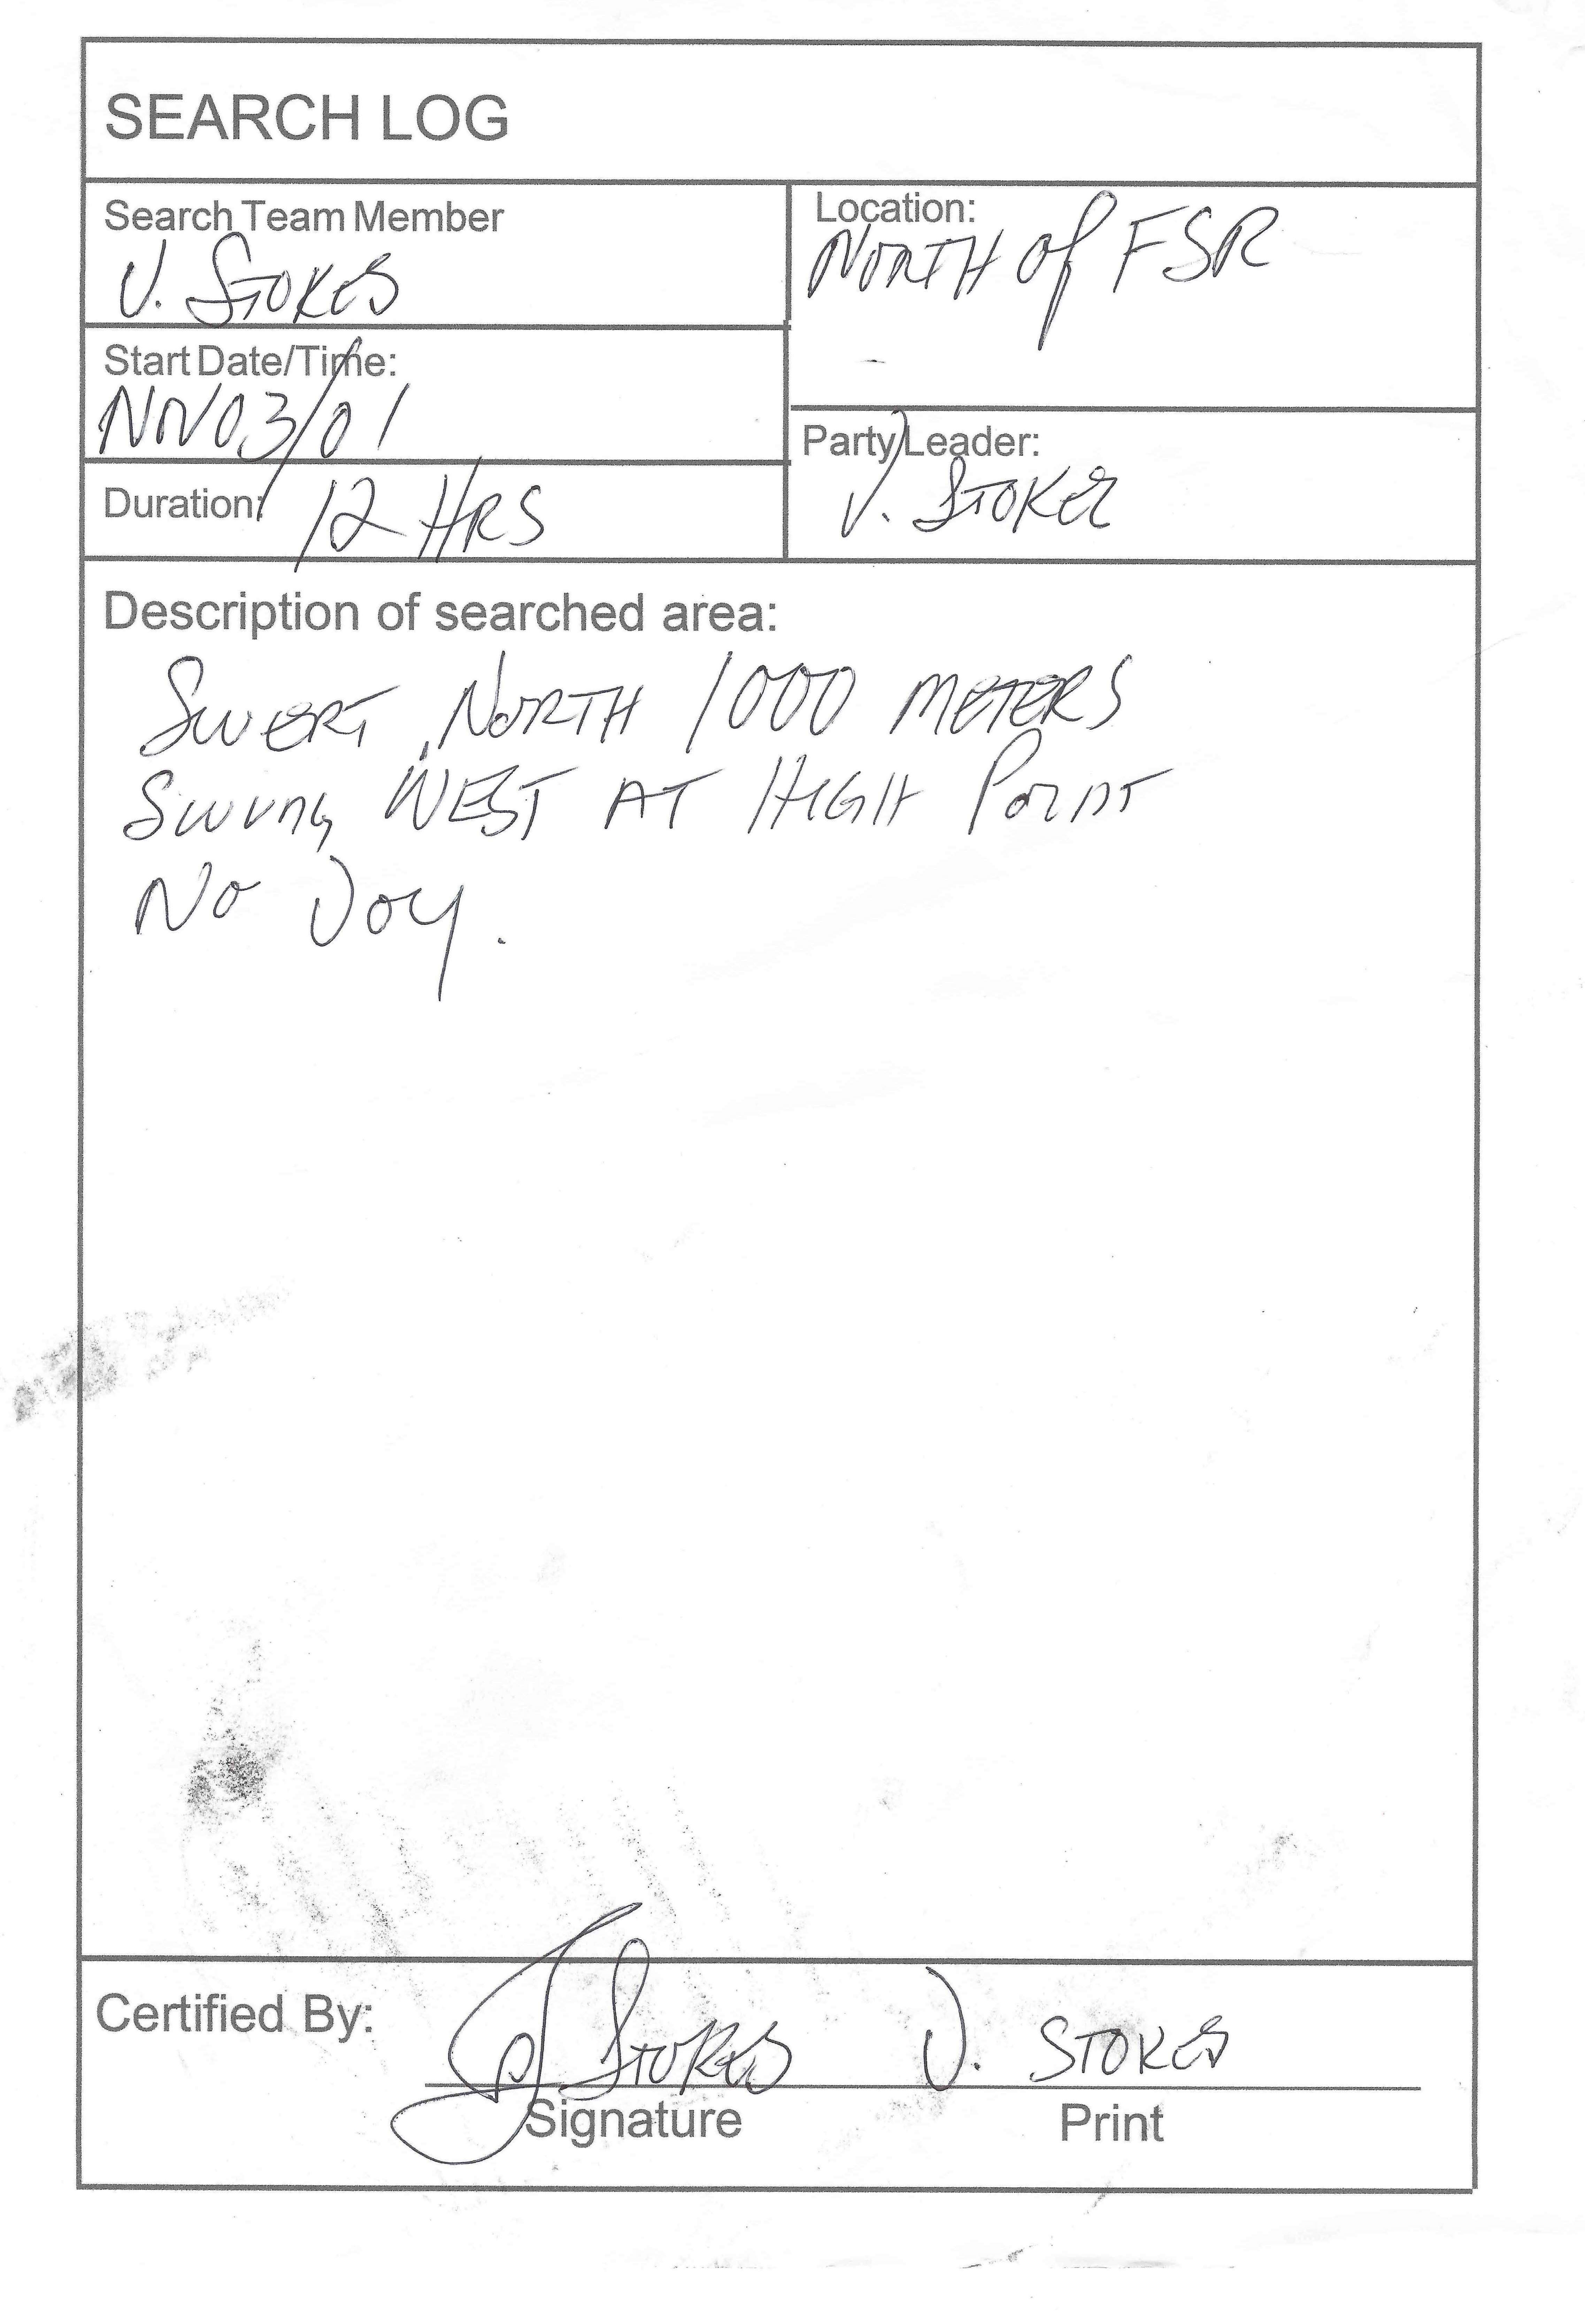 SEARCH LOG
Search Team Member
J. STOKES
Location:
NORTH of FSR
Start Date/Time:
NOV 03/01
Party Leader:
J. STOKES
Duration: 12 HRS
Description of searched area:
SWEPT NORTH 1000 METERS
SWUNG WEST AT HIGH POINT
NO JOY.
Certified By:
J STOKES J. STOKES
Signature Print